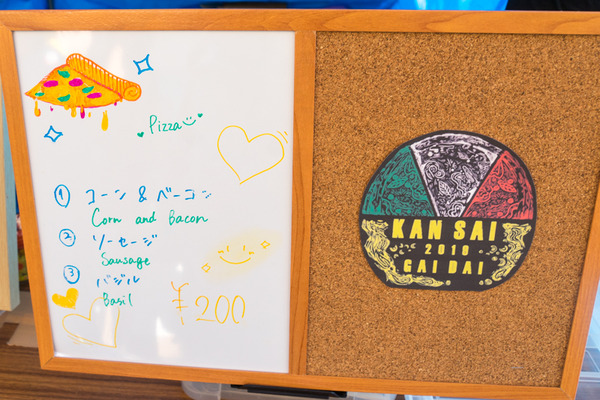 Pizza
① コーン & ベーコン
Corn and Bacon
② ソーセージ
Sausage
③ バジル
Basil
¥200
KAN SAI
2018
GAI DAI